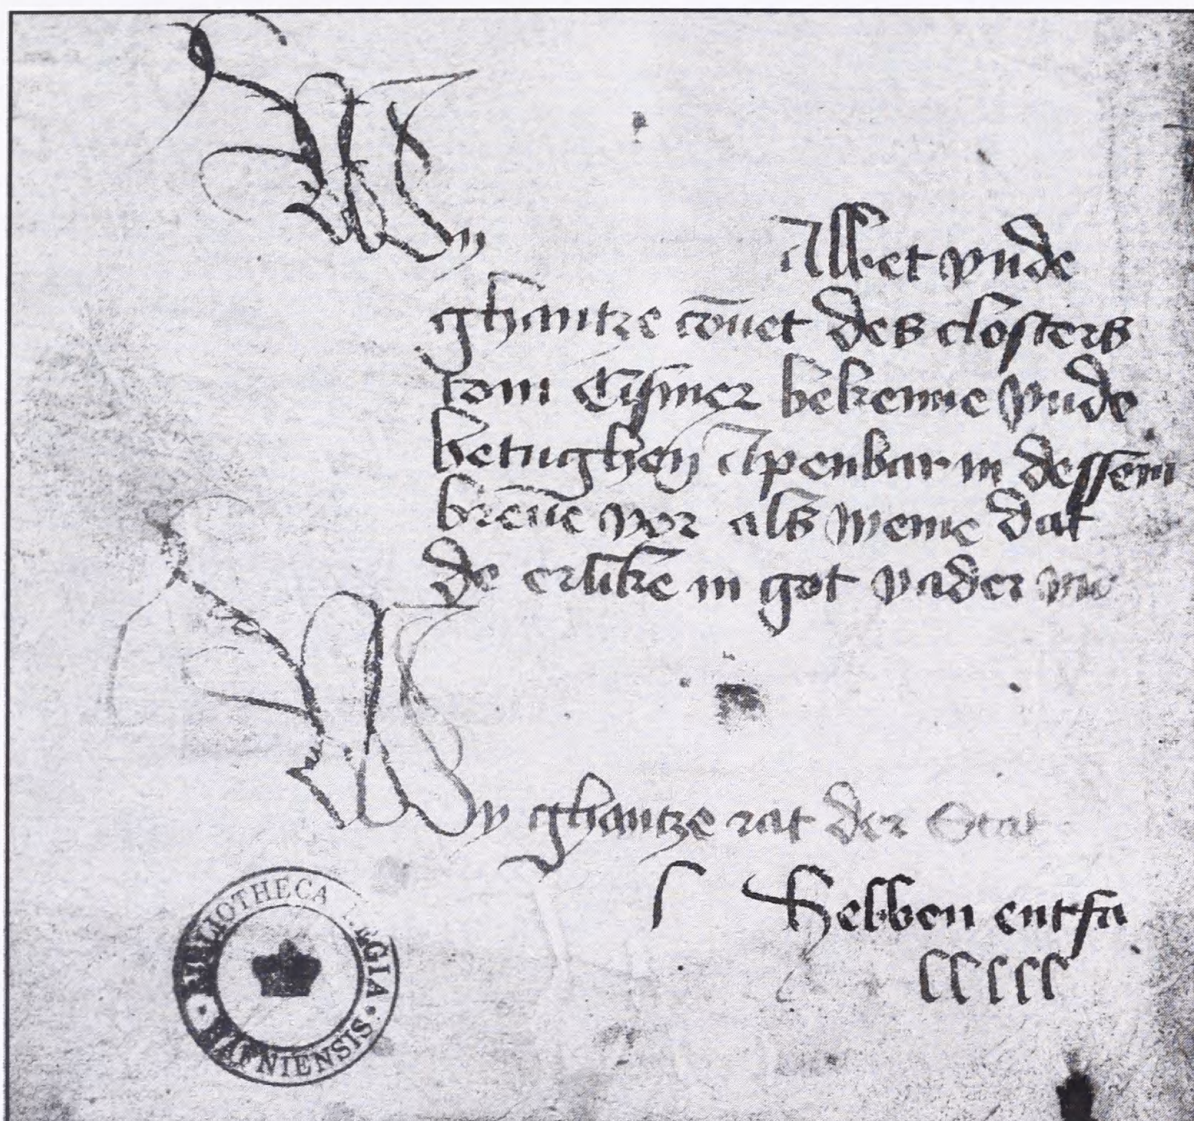 Wy Abbet vnde
ghantze cōuet des closters
tom Cismer bekenne vnde
betughen Apenbar in dessem
breue vor als weme dat
de erlike in got vader
Wy ghantze rat der Stat
l Hebben entfa
lllll
BIBLIOTHECA REGIA HAFNIENSIS